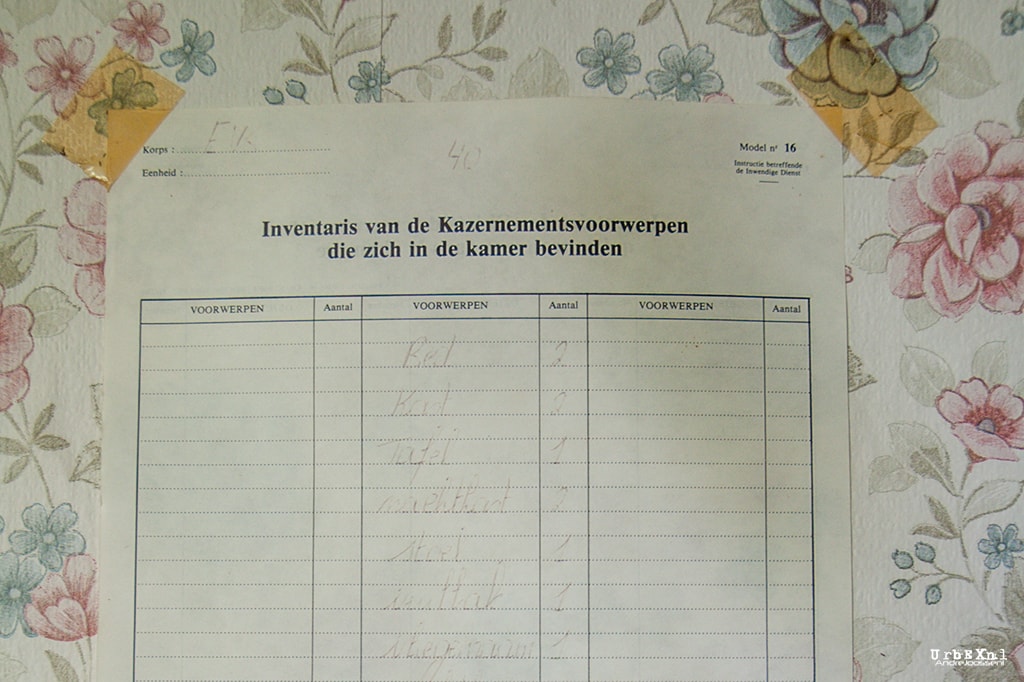 Korps : E
40
Model nʳ 16
Eenheid :
Instructie betreffende
de Inwendige Dienst
Inventaris van de Kazernementsvoorwerpen
die zich in de kamer bevinden
VOORWERPEN Aantal VOORWERPEN Aantal VOORWERPEN Aantal
Bed 2
Kast 2
Tafel 1
nachtkast 2
stoel
1
UrbEXnl
Andrejoosse.nl